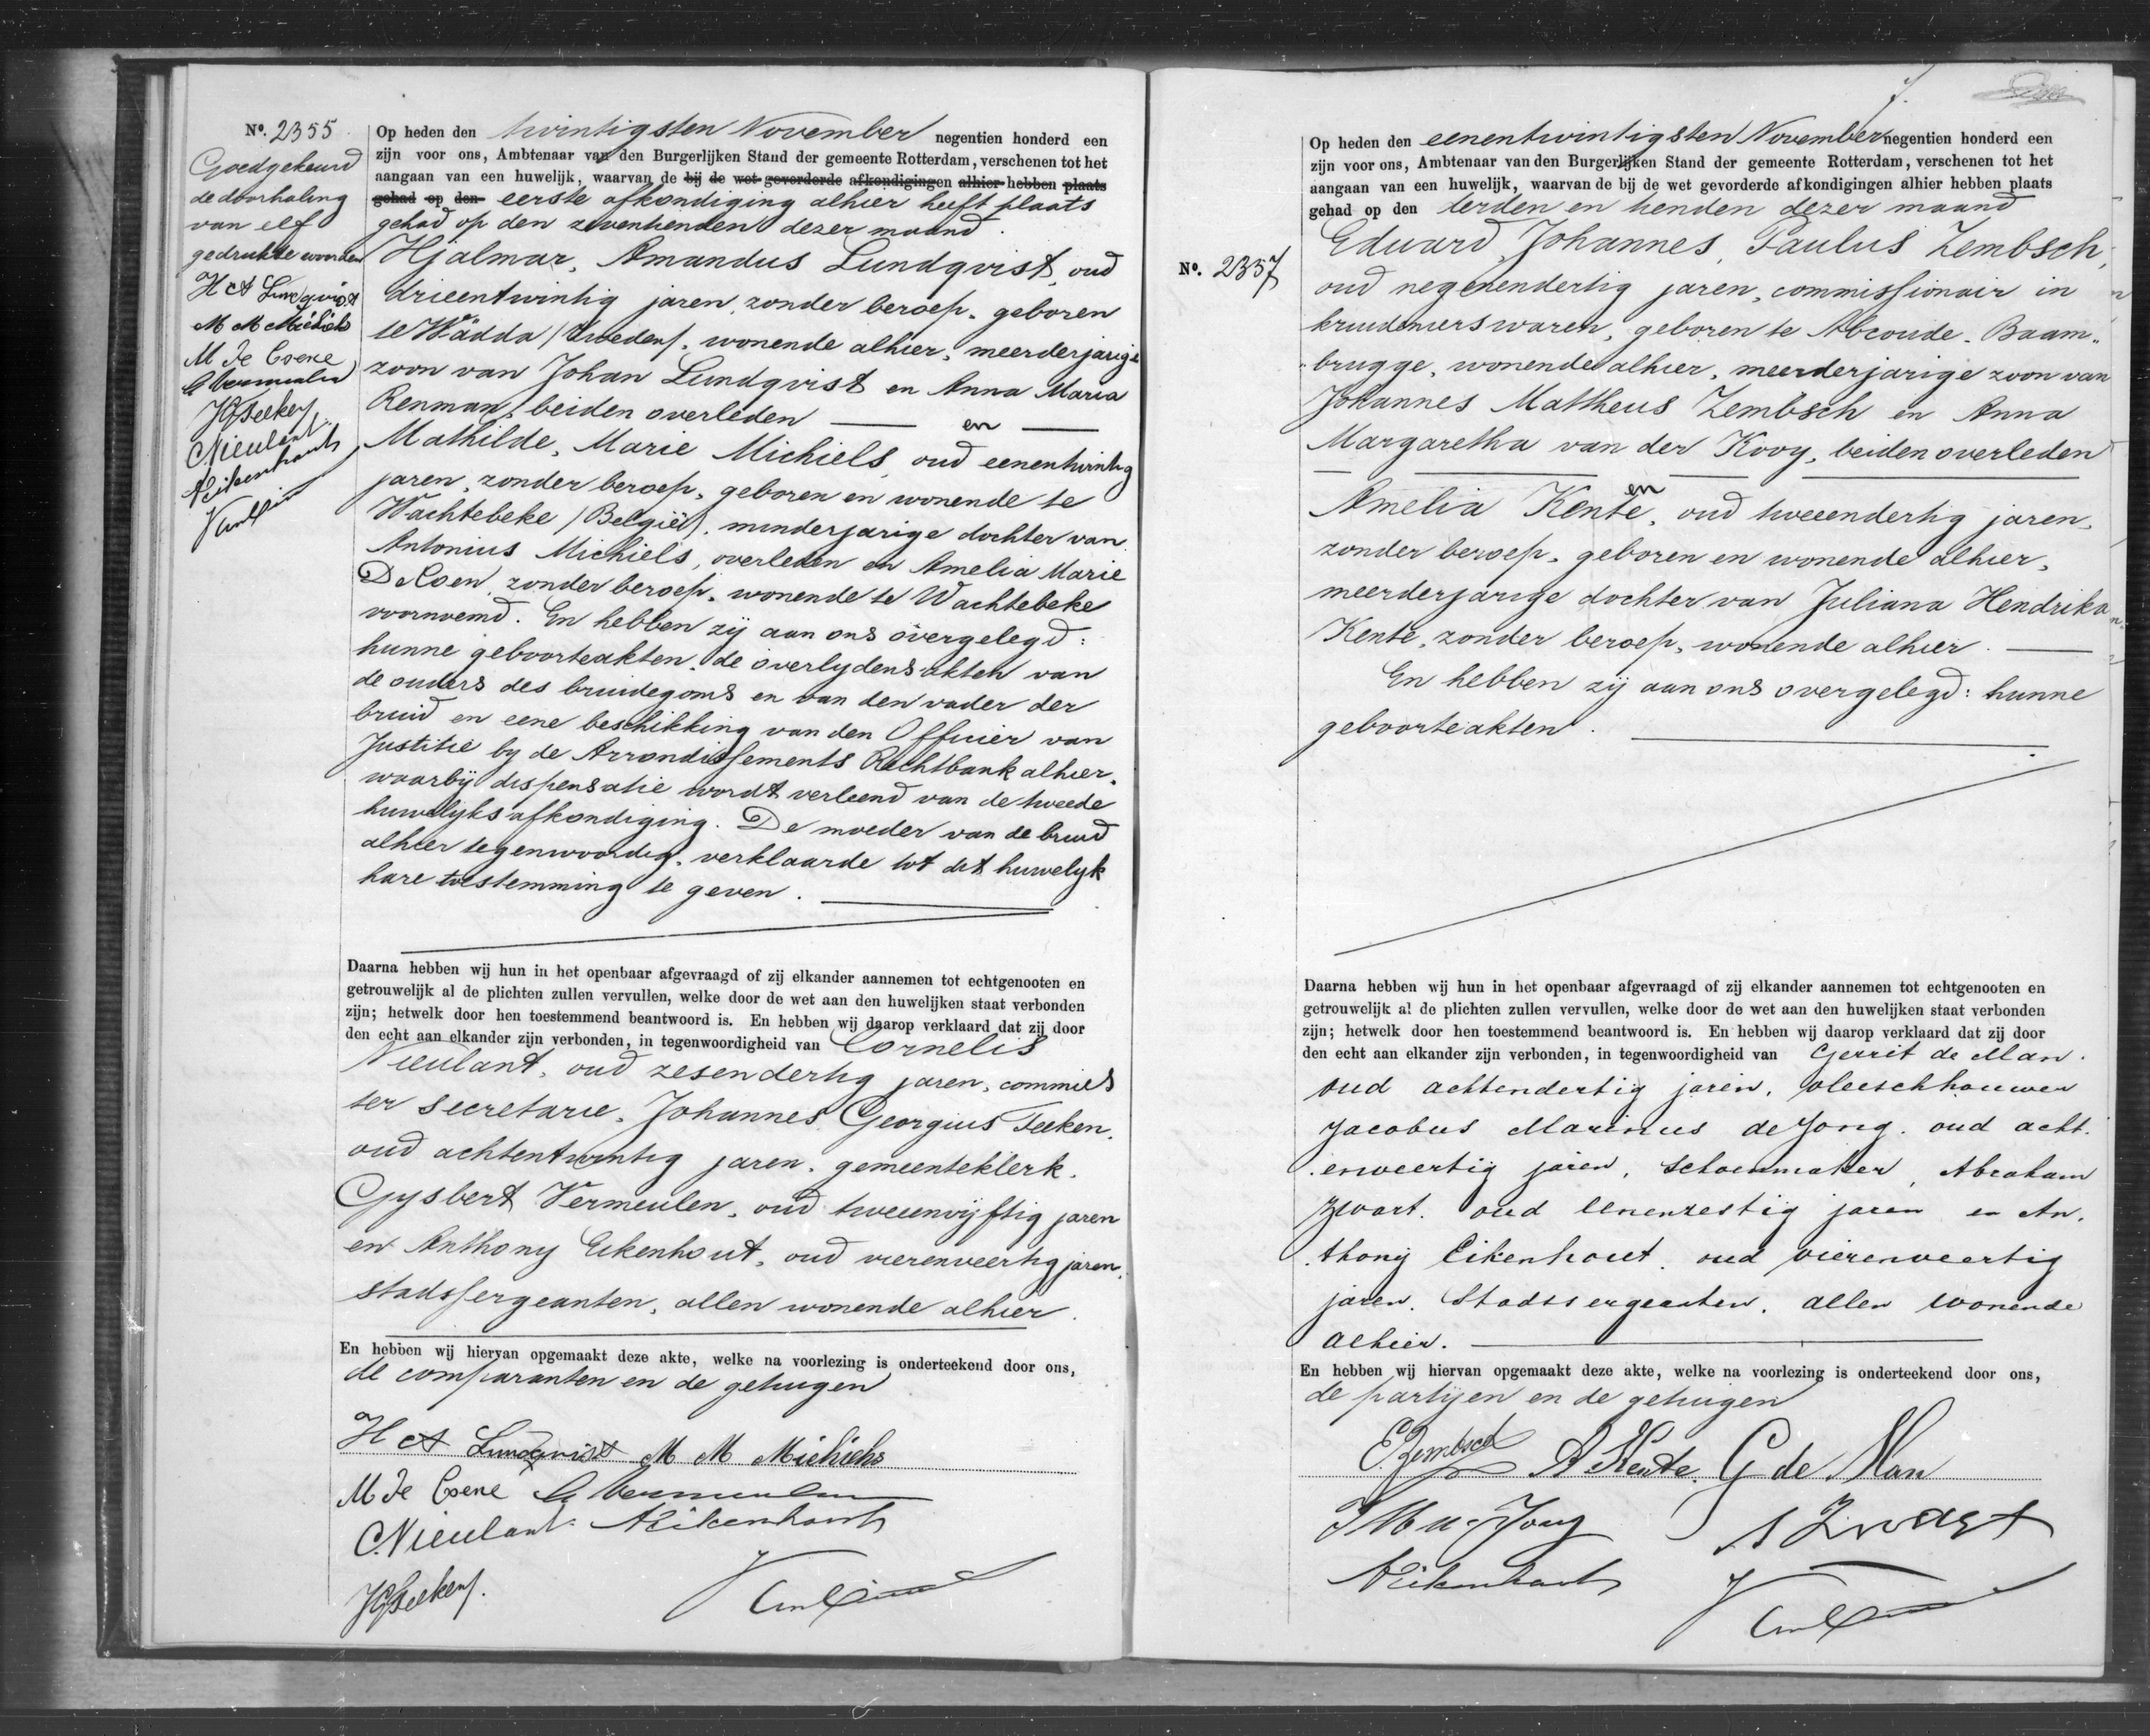 Nº. 2355
Goedgekeurd
de doorhaling
van elf
gedrukte woorden
H A Lundqvist
M M Michiels
M De Coene
G Vermeulen
JG Teeken
C Nieulant
A Eikenhout
Op heden den twintigsten November negentien honderd een
zijn voor ons, Ambtenaar van den Burgerlijken Stand der gemeente Rotterdam, verschenen tot het
aangaan van een huwelijk, waarvan de bij de wet gevorderde afkondigingen alhier hebben plaats
gehad op den eerste afkondiging alhier heeft plaats
gehad op den zeventienden dezer maand.
Hjalmar, Amandus Lundqvist, oud
drieentwintig jaren, zonder beroep, geboren
te Wädda (Zweden), wonende alhier, meerderjarige
zoon van Johan Lundqvist en Anna Maria
Renman, beiden overleden — en —
Mathilde, Marie Michiels, oud eenentwintig
jaren, zonder beroep, geboren en wonende te
Wachtebeke (België), minderjarige dochter van
Antonius Michiels, overleden en Amelia Marie
De Coen, zonder beroep, wonende te Wachtebeke
voornoemd. En hebben zij aan ons overgelegd:
hunne geboorteakten, de overlydensakten van
de ouders des bruidegoms en van den vader der
bruid en eene beschikking van den Officier van
Justitie by de Arrondissements Rechtbank alhier,
waarbij dispensatie wordt verleend van de tweede
huwelijksafkondiging. De moeder van de bruid
alhier tegenwoordig, verklaarde tot dit huwelyk
hare toestemming te geven.
Daarna hebben wij hun in het openbaar afgevraagd of zij elkander aannemen tot echtgenooten en
getrouwelijk al de plichten zullen vervullen, welke door de wet aan den huwelijken staat verbonden
zijn; hetwelk door hen toestemmend beantwoord is. En hebben wij daarop verklaard dat zij door
den echt aan elkander zijn verbonden, in tegenwoordigheid van Cornelis
Nieulant, oud zesendertig jaren, commies
ter secretarie, Johannes Georgius Teeken,
oud achtentwintig jaren, gemeenteklerk,
Gysbert Vermeulen, oud tweeenvijftig jaren
en Anthony Eikenhout, oud vierenveertig jaren,
stadssergeanten, allen wonende alhier.
En hebben wij hiervan opgemaakt deze akte, welke na voorlezing is onderteekend door ons,
de comparanten en de getuigen
H A Lundqvist M M Michiels
M De Coene G Vermeulen
C. Nieulant. A Eikenhout
JG Teeken.
Nº. 2357
Op heden den eenentwintigsten November negentien honderd een
zijn voor ons, Ambtenaar van den Burgerlijken Stand der gemeente Rotterdam, verschenen tot het
aangaan van een huwelijk, waarvan de bij de wet gevorderde afkondigingen alhier hebben plaats
gehad op den derden en tienden dezer maand
Eduard, Johannes, Paulus Zembsch,
oud negenendertig jaren, commissionair in
kruidenierswaren, geboren te Abcoude-Baam-
brugge, wonende alhier, meerderjarige zoon van
Johannes Mattheus Zembsch en Anna
Margaretha van der Kooy, beiden overleden
en
Amelia Kente, oud tweeendertig jaren,
zonder beroep, geboren en wonende alhier,
meerderjarige dochter van Juliana Hendrika
Kente, zonder beroep, wonende alhier.
En hebben zij aan ons overgelegd: hunne
geboorteakten.
Daarna hebben wij hun in het openbaar afgevraagd of zij elkander aannemen tot echtgenooten en
getrouwelijk al de plichten zullen vervullen, welke door de wet aan den huwelijken staat verbonden
zijn; hetwelk door hen toestemmend beantwoord is. En hebben wij daarop verklaard dat zij door
den echt aan elkander zijn verbonden, in tegenwoordigheid van Gerrit de Man.
oud achtendertig jaren, vleeschhouwer
Jacobus Marinus de Jong. oud acht.
enveertig jaren, schoenmaker, Abraham
Zwart. oud eenenzestig jaren en An.
thony Eikenhout. oud vierenveertig
jaren. Stadssergeanten. allen wonende
alhier.
En hebben wij hiervan opgemaakt deze akte, welke na voorlezing is onderteekend door ons,
de partijen en de getuigen
E Zembsch A Kente. G de Man
J M de Jong A Zwart
A Eikenhout